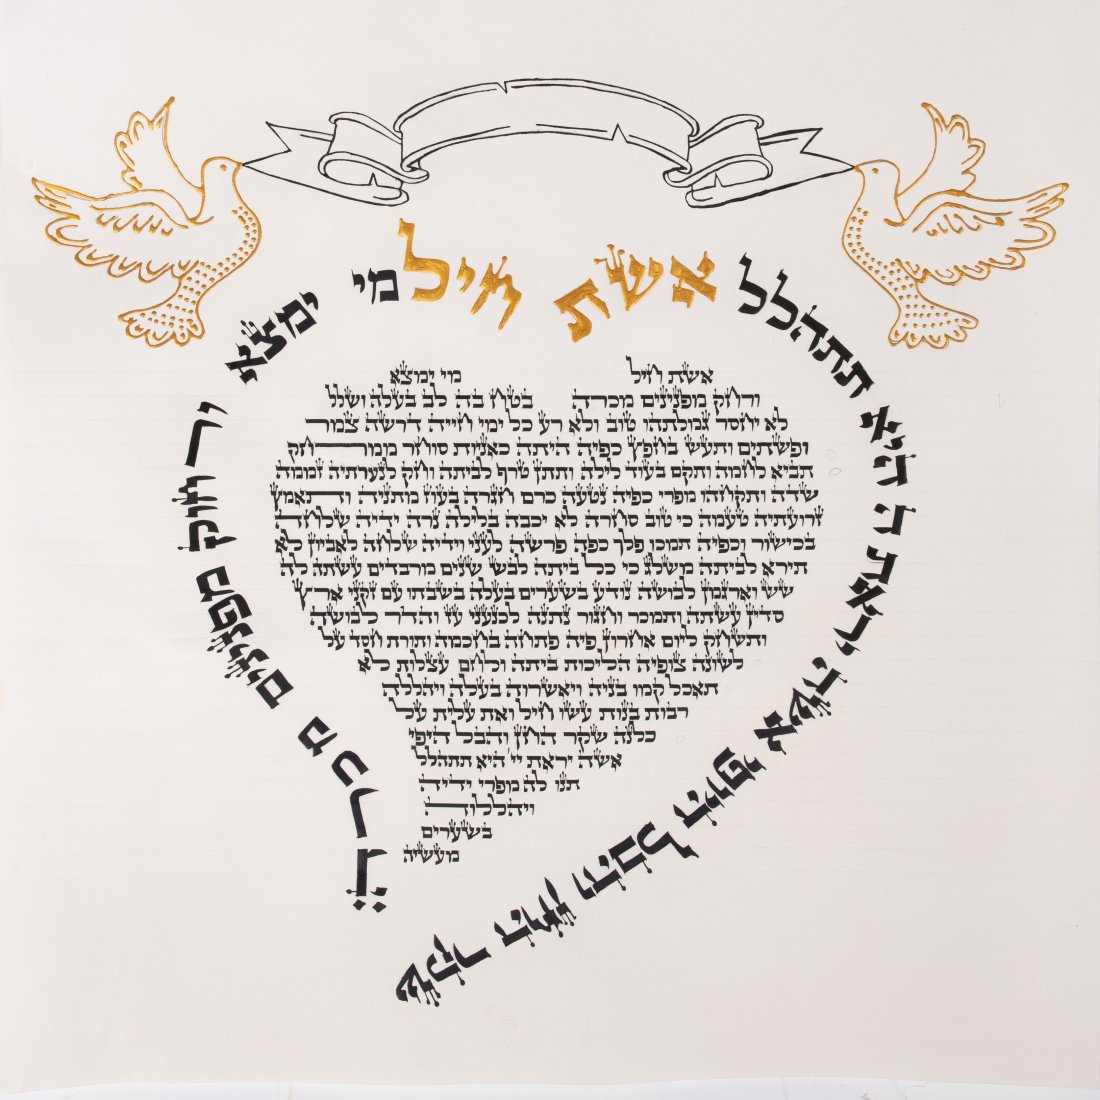 אשת חיל מי ימצא ורחוק מפנינים מכרה
שקר החן והבל היופי אשה יראת ה היא תתהלל
אשת חיל מי ימצא
ורחק מפנינים מכרה בטח בה לב בעלה ושלל
לא יחסר גמלתהו טוב ולא רע כל ימי חייה דרשה צמר
ופשתים ותעש בחפץ כפיה היתה כאניות סוחר ממרחק
תביא לחמה ותקם בעוד לילה ותתן טרף לביתה וחק לנערתיה זממה
שדה ותקחהו מפרי כפיה נטעה כרם חגרה בעוז מתניה ותאמץ
זרועתיה טעמה כי טוב סחרה לא יכבה בלילה נרה ידיה שלחה
בכישור וכפיה תמכו פלך כפה פרשה לעני וידיה שלחה לאביון לא
תירא לביתה משלג כי כל ביתה לבש שנים מרבדים עשתה לה
שש וארגמן לבושה נודע בשערים בעלה בשבתו עם זקני ארץ
סדין עשתה ותמכר וחגור נתנה לכנעני עז והדר לבושה
ותשחק ליום אחרון פיה פתחה בחכמה ותורת חסד על
לשונה צופיה הליכות ביתה ולחם עצלות לא
תאכל קמו בניה ויאשרוה בעלה ויהללה
רבות בנות עשו חיל ואת עלית על
כלנה שקר החן והבל היפי
אשה יראת יי היא תתהלל
תנו לה מפרי ידיה
ויהללוה
בשערים
מעשיה